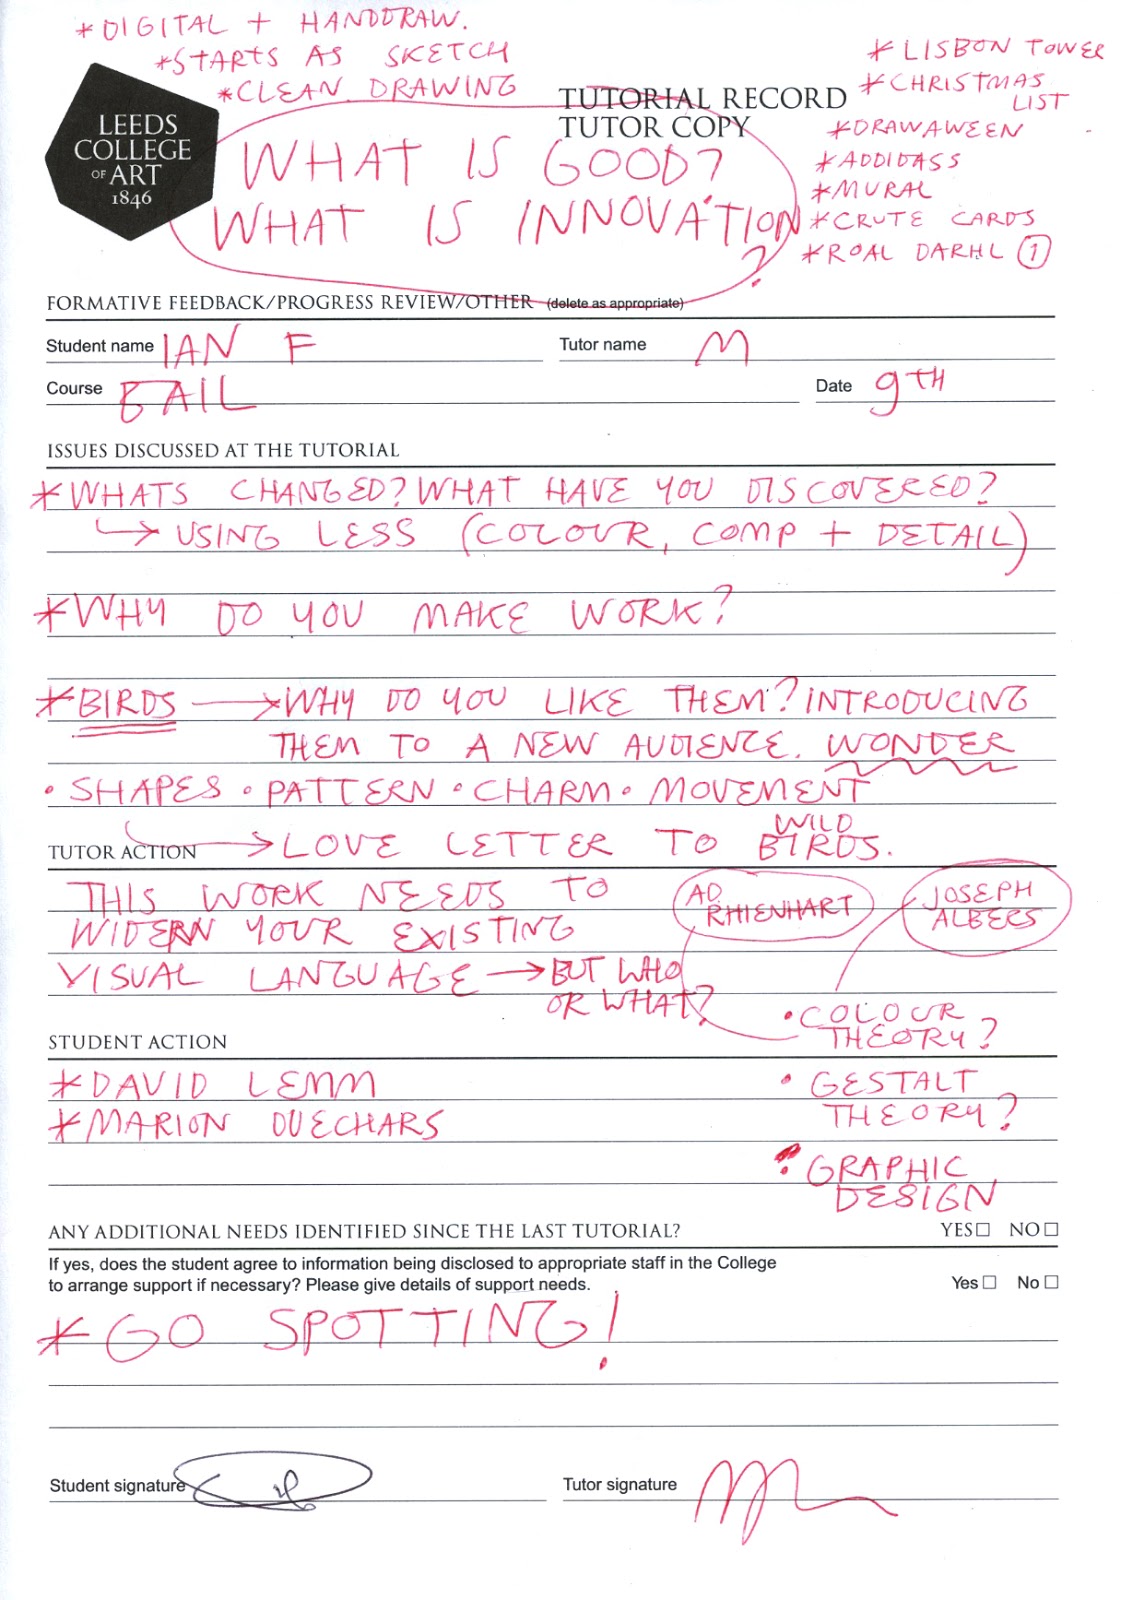 *DIGITAL + HANDDRAW.
*STARTS AS SKETCH
*CLEAN DRAWING
*LISBON TOWER
*CHRISTMAS LIST
*DRAWAWEEN
*ADDIDASS
*MURAL
*CRUTE CARDS
*ROAL DARHL 1
LEEDS
COLLEGE
OF ART
1846
TUTORIAL RECORD
TUTOR COPY
WHAT IS GOOD?
WHAT IS INNOVATION?
FORMATIVE FEEDBACK/PROGRESS REVIEW/OTHER (delete as appropriate)
Student name IAN F Tutor name M
Course BAIL Date 9TH
ISSUES DISCUSSED AT THE TUTORIAL
*WHATS CHANGED? WHAT HAVE YOU DISCOVERED?
→ USING LESS (COLOUR, COMP + DETAIL)
*WHY DO YOU MAKE WORK?
*BIRDS → WHY DO YOU LIKE THEM? INTRODUCING
THEM TO A NEW AUDIENCE. WONDER
• SHAPES • PATTERN • CHARM • MOVEMENT
→ LOVE LETTER TO WILD BIRDS.
TUTOR ACTION
THIS WORK NEEDS TO
WIDERN YOUR EXISTING
VISUAL LANGUAGE → BUT WHO
OR WHAT?
AD
RHIENHART
JOSEPH
ALBERS
• COLOUR
THEORY?
STUDENT ACTION
*DAVID LEMM
*MARION DUECHARS
• GESTALT
THEORY?
• GRAPHIC
DESIGN
ANY ADDITIONAL NEEDS IDENTIFIED SINCE THE LAST TUTORIAL? YES☐ NO☐
If yes, does the student agree to information being disclosed to appropriate staff in the College
to arrange support if necessary? Please give details of support needs. Yes ☐ No ☐
* GO SPOTTING!
Student signature Tutor signature